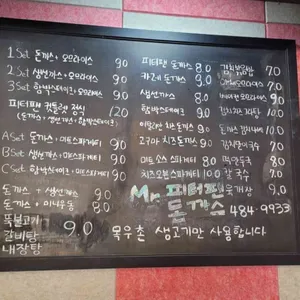 1 Set 돈까스+오므라이스 9.0
2 Set 생선까스+오므라이스 9.0
3 Set 함박스테이크+오므라이스 9.0
피터팬 정식 12.0
(돈까스+생선까스+함박스테이크)
A Set 돈까스+미트스파게티 9.0
B Set 생선까스+미트스파게티 9.0
C Set 함박스테이크+미트스파게티 9.0
돈까스+생선까스 9.0
돈까스+미니우동 8.0
뚝불고기
갈비탕 9.0
내장탕
피터팬 돈까스 8.0
카레 돈까스 9.0
생선까스 9.0
함박스테이크 9.0
치즈 돈까스 9.0
고구마 치즈돈까스 9.0
미트소스 스파게티 8.0
치즈오븐스파게티 10.0
김치볶음밥 7.0
오므라이스
돈까스 김치
칼국수
육개장 9.0
Mr. 피터팬
돈까스
484-9933
목우촌 생고기만 사용합니다